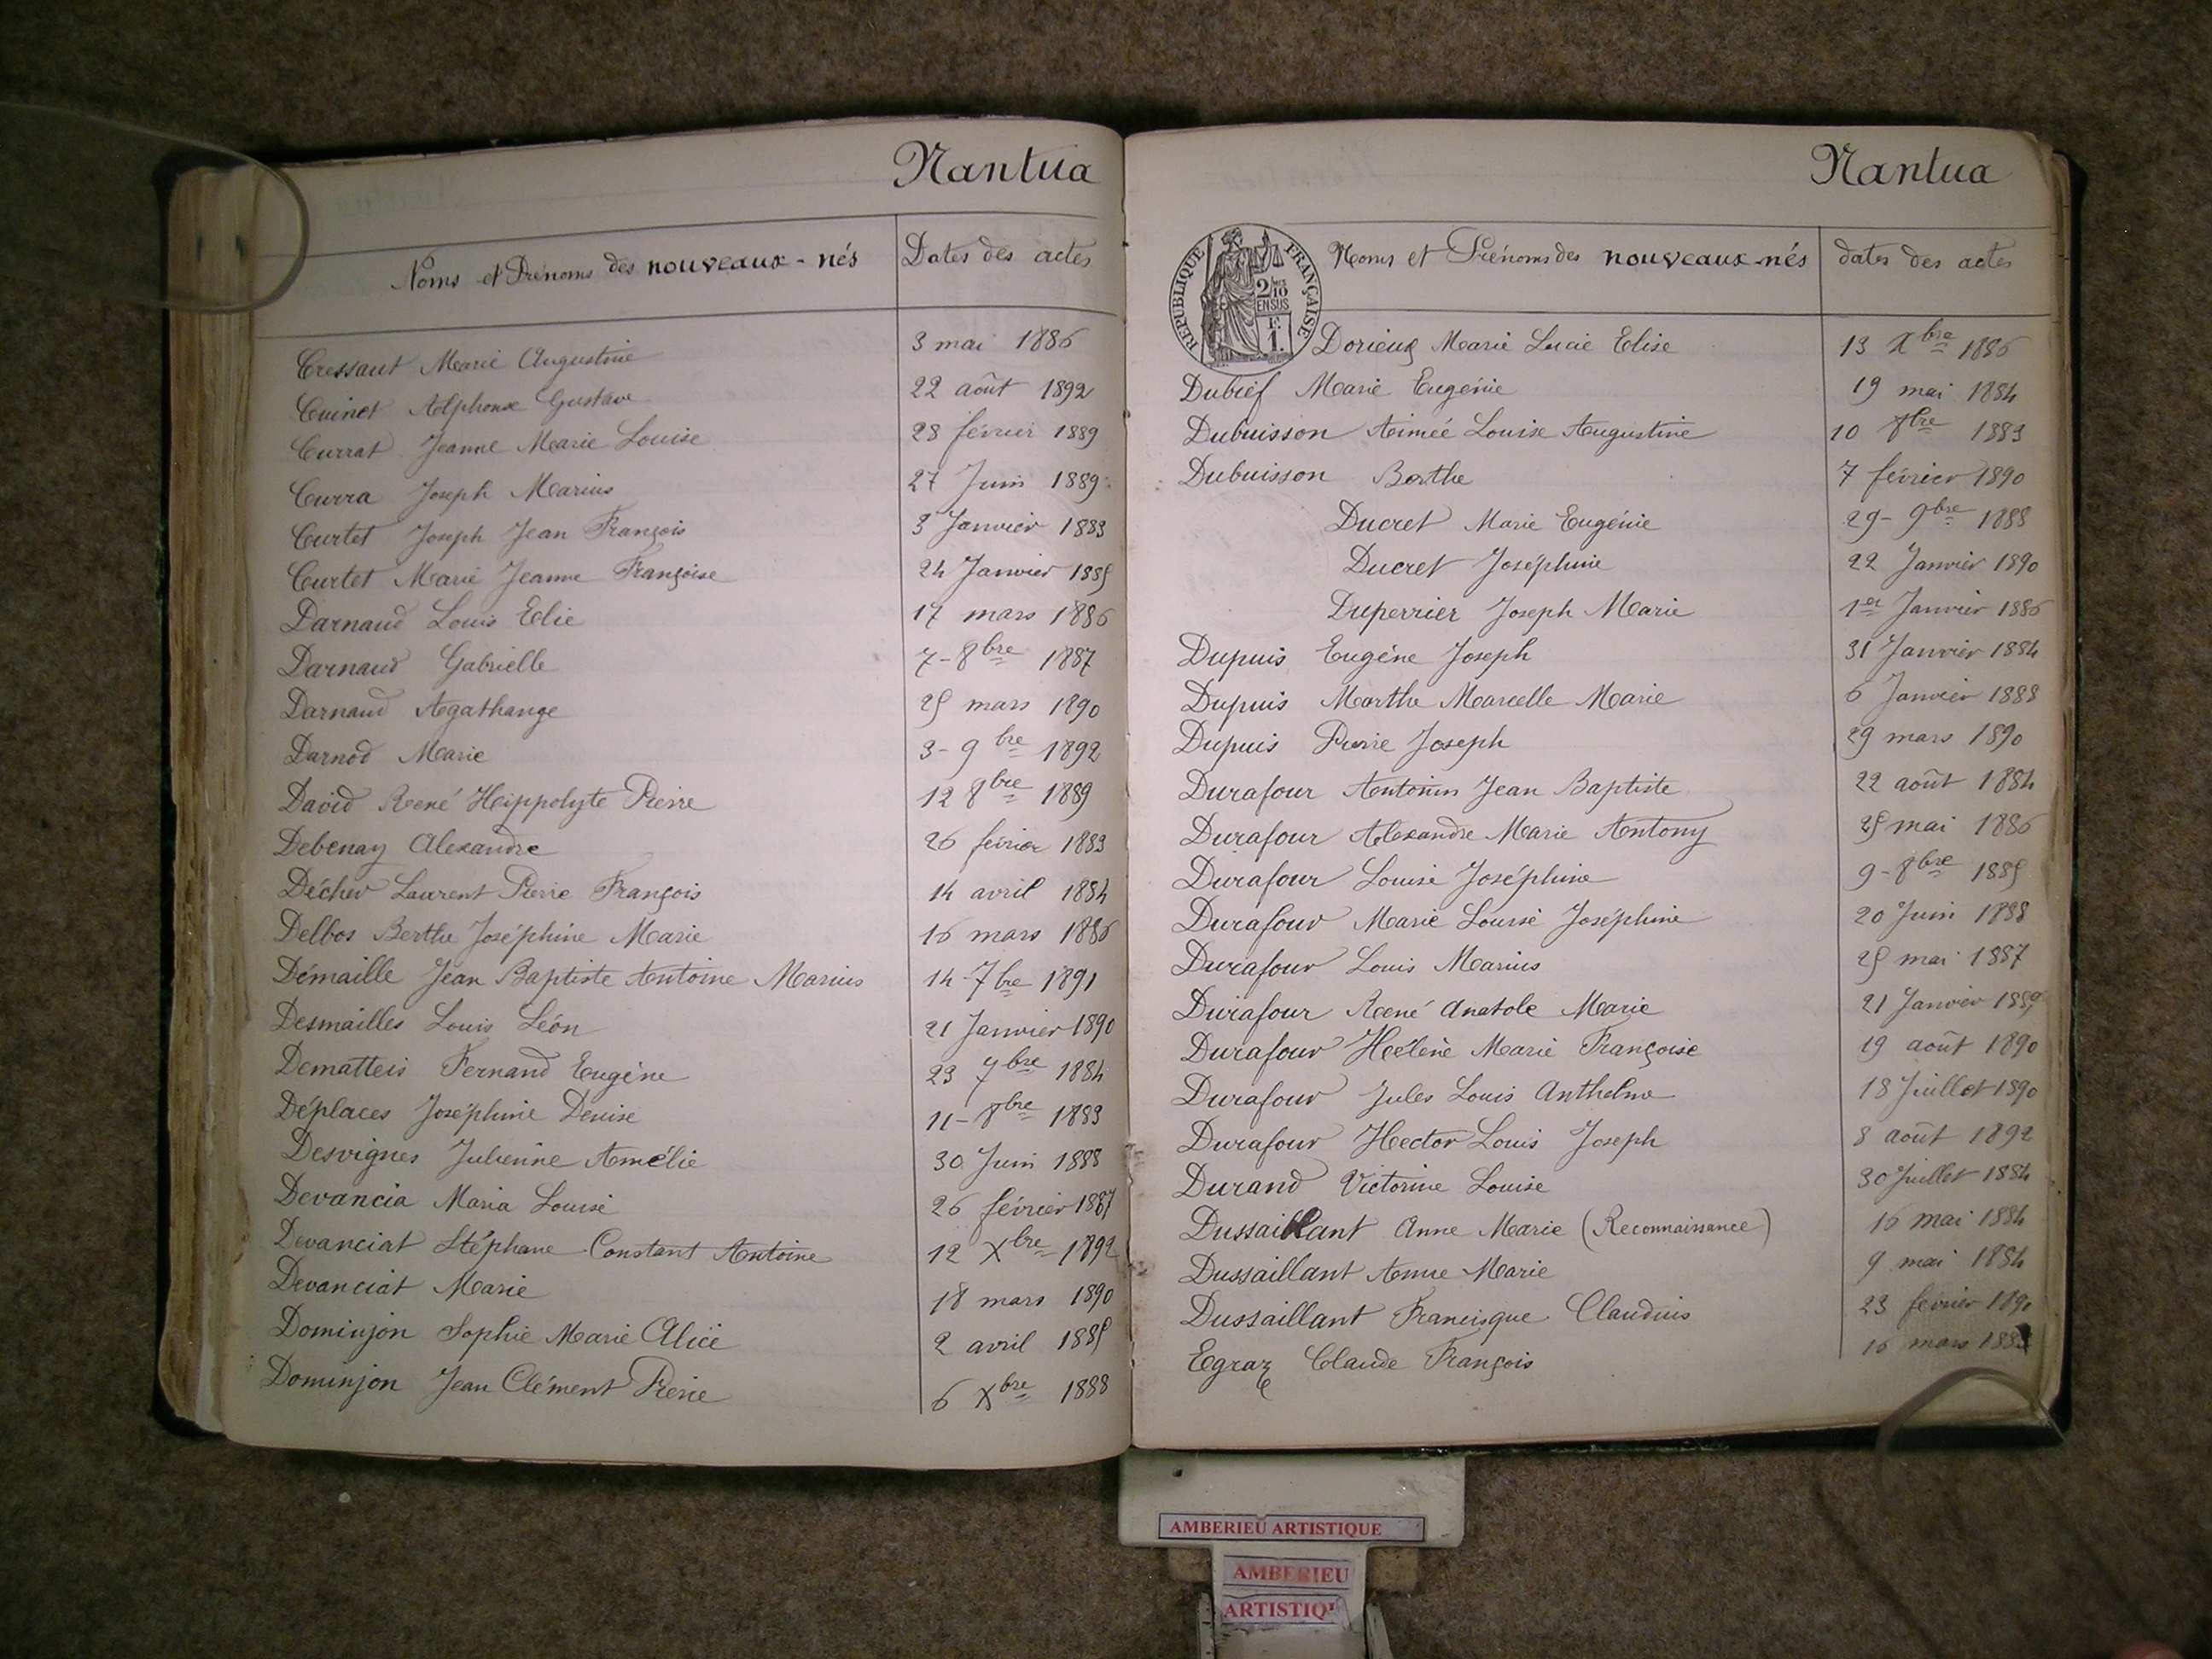 Nantua
Noms et Prénoms des nouveaux-nés Dates des actes
Cressaut Marie Augustine 3 mai 1886
Cuinet Alphonse Gustave 22 août 1892
Currat Jeanne Marie Louise 28 février 1889
Curra Joseph Marius 27 Juin 1889
Curtet Joseph Jean François 3 Janvier 1883
Curtet Marie Jeanne Françoise 24 Janvier 1885
Darnaud Louis Elie 17 mars 1886
Darnaud Gabrielle 7-8bre 1887
Darnaud Agathange 25 mars 1890
Darnod Marie 3-9bre 1892
David René Hippolyte Pierre 12 8bre 1889
Debenay Alexandre 26 février 1883
Décher Laurent Pierre François 14 avril 1884
Delbos Berthe Joséphine Marie 16 mars 1886
Démaille Jean Baptiste Antoine Marius 14-7bre 1891
Desmailles Louis Léon 21 Janvier 1890
Dematteis Fernand Eugène 23 7bre 1884
Déplaces Joséphine Denise 11-8bre 1883
Desvignes Julienne Amélie 30 Juin 1888
Devancia Maria Louise 26 février 1887
Devanciat Stéphane Constant Antoine 12 Xbre 1892
Devanciat Marie 18 mars 1890
Dominjon Sophie Marie Alice 2 avril 1885
Dominjon Jean Clément Pierre 6 Xbre 1888
Nantua
RÉPUBLIQUE FRANÇAISE
2/10
EN SUS
1F.
Noms et Prénoms des nouveaux-nés dates des actes
Dorieux Marie Lucie Elise 13 Xbre 1886
Dubief Marie Eugénie 19 mai 1884
Dubuisson Aimée Louise Augustine 10 8bre 1883
Dubuisson Berthe 7 février 1890
Ducret Marie Eugénie 29-9bre 1888
Ducret Joséphine 22 Janvier 1890
Duperrier Joseph Marie 1er Janvier 1886
Dupuis Eugène Joseph 31 Janvier 1884
Dupuis Marthe Marcelle Marie 6 Janvier 1888
Dupuis Pierre Joseph 29 mars 1890
Durafour Antonin Jean Baptiste 22 août 1884
Durafour Alexandre Marie Antony 25 mai 1886
Durafour Louise Joséphine 9-8bre 1885
Durafour Marie Louise Joséphine 20 Juin 1888
Durafour Louis Marius 25 mai 1887
Durafour René Anatole Marie 21 Janvier 1889
Durafour Hélène Marie Françoise 19 août 1890
Durafour Jules Louis Anthelme 18 Juillet 1890
Durafour Hector Louis Joseph 8 août 1892
Durand Victorine Louise 30 Juillet 1884
Dussaillant Anne Marie (Reconnaissance) 16 mai 1884
Dussaillant Anne Marie 9 mai 1884
Dussaillant Francisque Claudius 23 février 1890
Egraz Claude François 16 mars
AMBERIEU ARTISTIQUE
AMBERIEU
ARTISTIQU